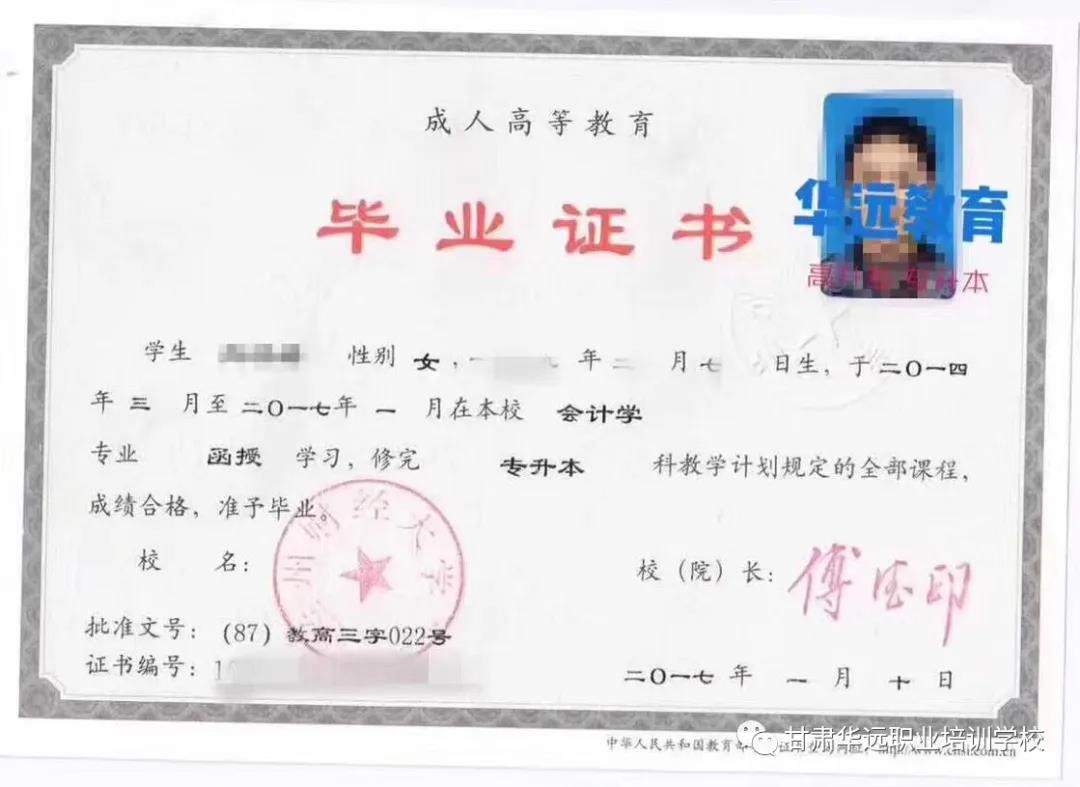 成人高等教育
毕业证书
华远教育
高升专 专升本
学生 性别 女，一 年 二 月 七 日生，于 二〇一四
年 三 月至 二〇一七年 一 月在本校 会计学
专业 函授 学习，修完 专升本 科教学计划规定的全部课程，
成绩合格，准予毕业。
州财经大学
校 名： 校（院）长： 傅德印
批准文号：(87）教高三字022号
证书编号：1
二〇一七 年 一 月 十 日
中华人民共和国教育部
http://www.chsi.com.cn
甘肃华远职业培训学校